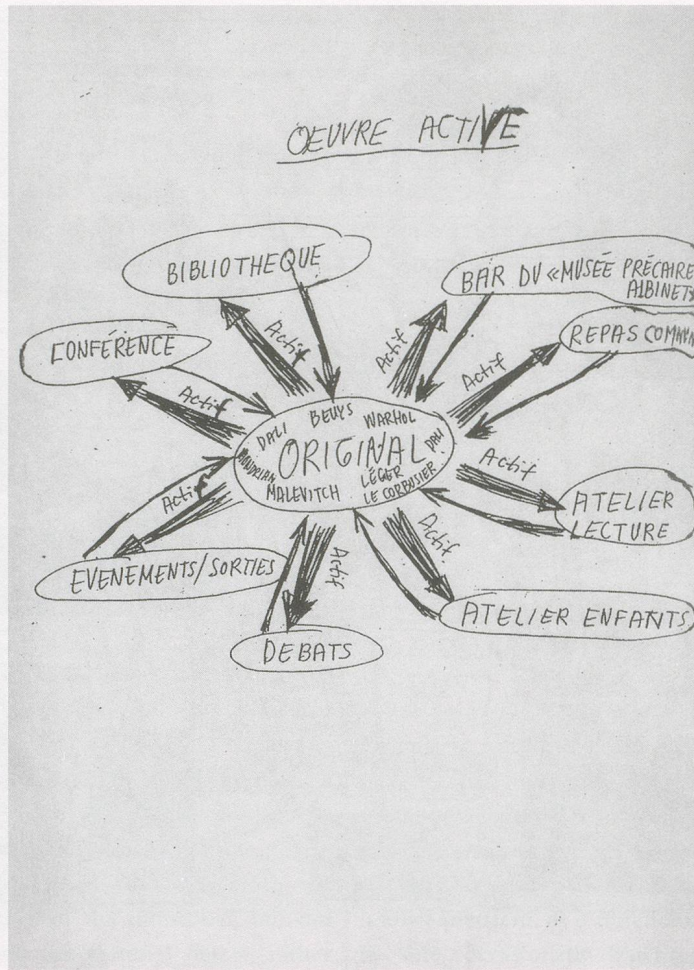 OEUVRE ACTIVE
BIBLIOTHEQUE
BAR DU «MUSÉE PRÉCAIRE
ALBINET»
CONFÉRENCE
REPAS COMMUN
Actif
Actif
Actif
Actif
DALI
BEUYS
WARHOL
DALI
MONDRIAN
ORIGINAL
MALEVITCH
LÉGER
LE CORBUSIER
Actif
Actif
ATELIER
LECTURE
Actif
Actif
EVENEMENTS/SORTIES
ATELIER ENFANTS
DEBATS